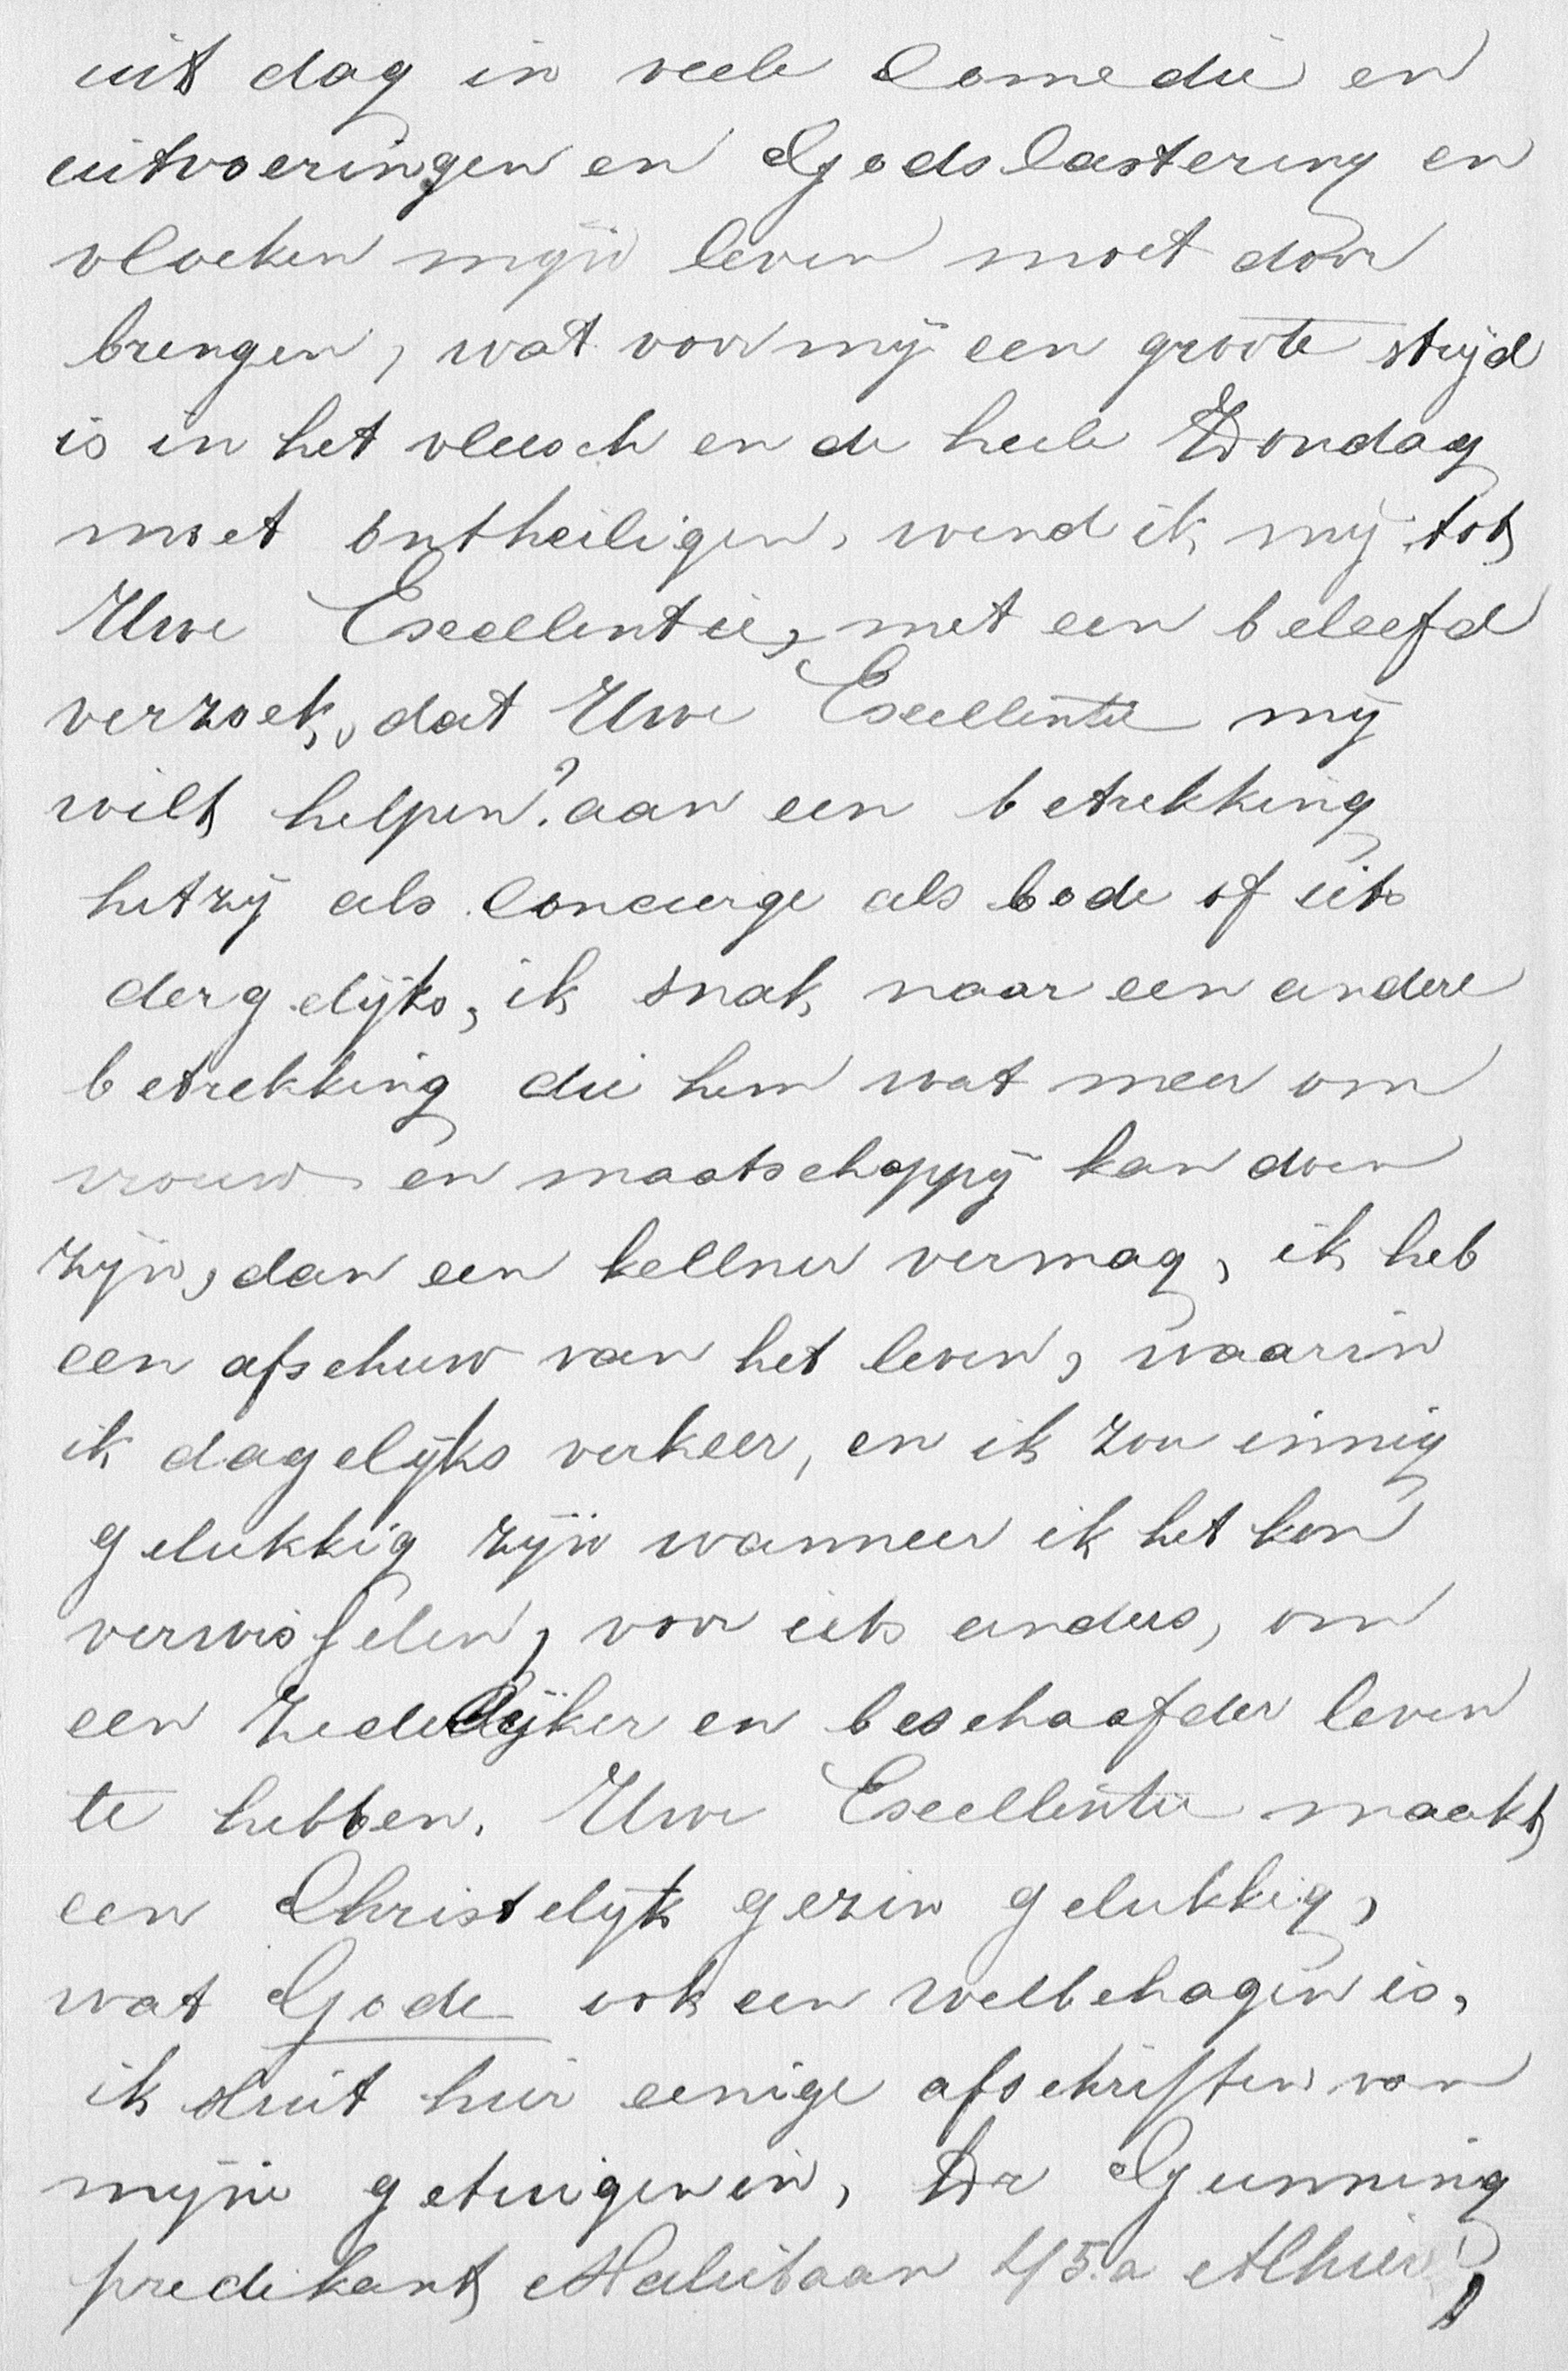 uit dag in veele Comedie en
uitvoeringen en Godslastering en
vloeken mijn leven moet door
brengen, wat voor mij een groote strijd
is in het vleesch en de heele Zondag
moet ontheiligen, wend ik mij tot
Uwe Excellentie, met een beleefd
verzoek, dat Uwe Excellentie mij
wilt helpen? aan een betrekking
hetzij als Concierge als bode of iets
dergelijks, ik snak naar een andere
betrekking die hem wat meer om
vrouw en maatschappij kan doen
zijn, dan een kellner vermag, ik heb
een afschuw van het leven, waarin
ik dagelijks verkeer, en ik zou innig
gelukkig zijn wanneer ik het kon
verwisselen, voor iets anders, om
een zedelijker en beschaafder leven
te hebben. Uwe Excellentie maakt
een Christelijk gezin gelukkig,
wat Gode ook een welbehagen is,
ik sluit hier eenige afschriften van
mijne getuigenen, Dr Gunning
predikant Maliebaan 45a Alhier,